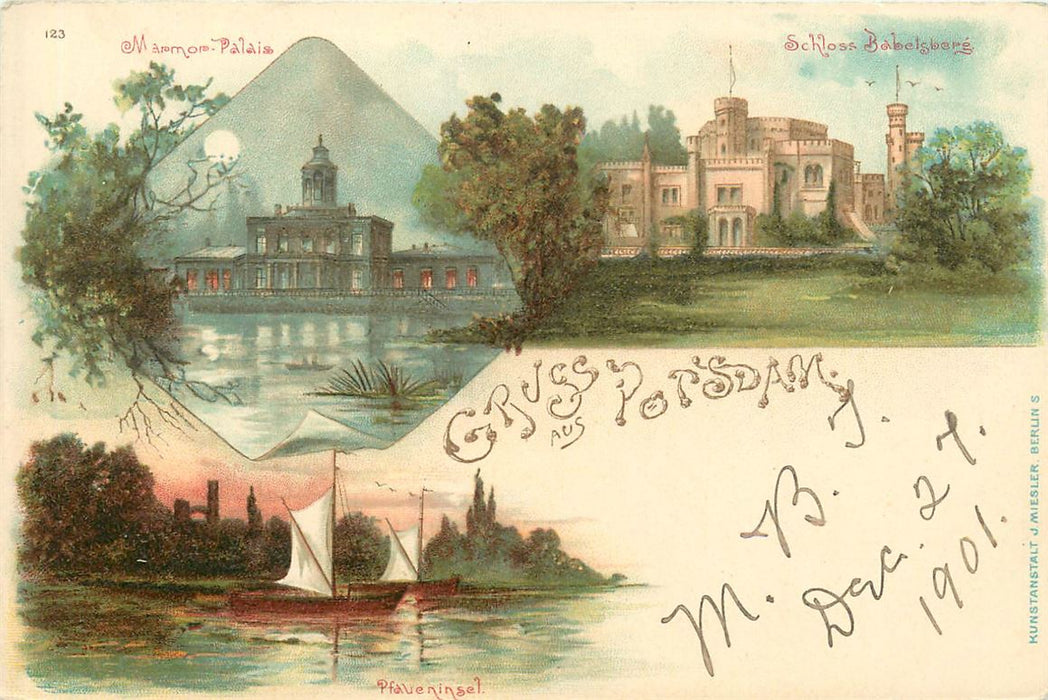 123
Marmor-Palais
Schloss Babelsberg
GRUSS
AUS
POTSDAM.
M. B. J.
Dec. 27.
1901.
Pfaueninsel.
KUNSTANSTALT J. MIESLER. BERLIN S